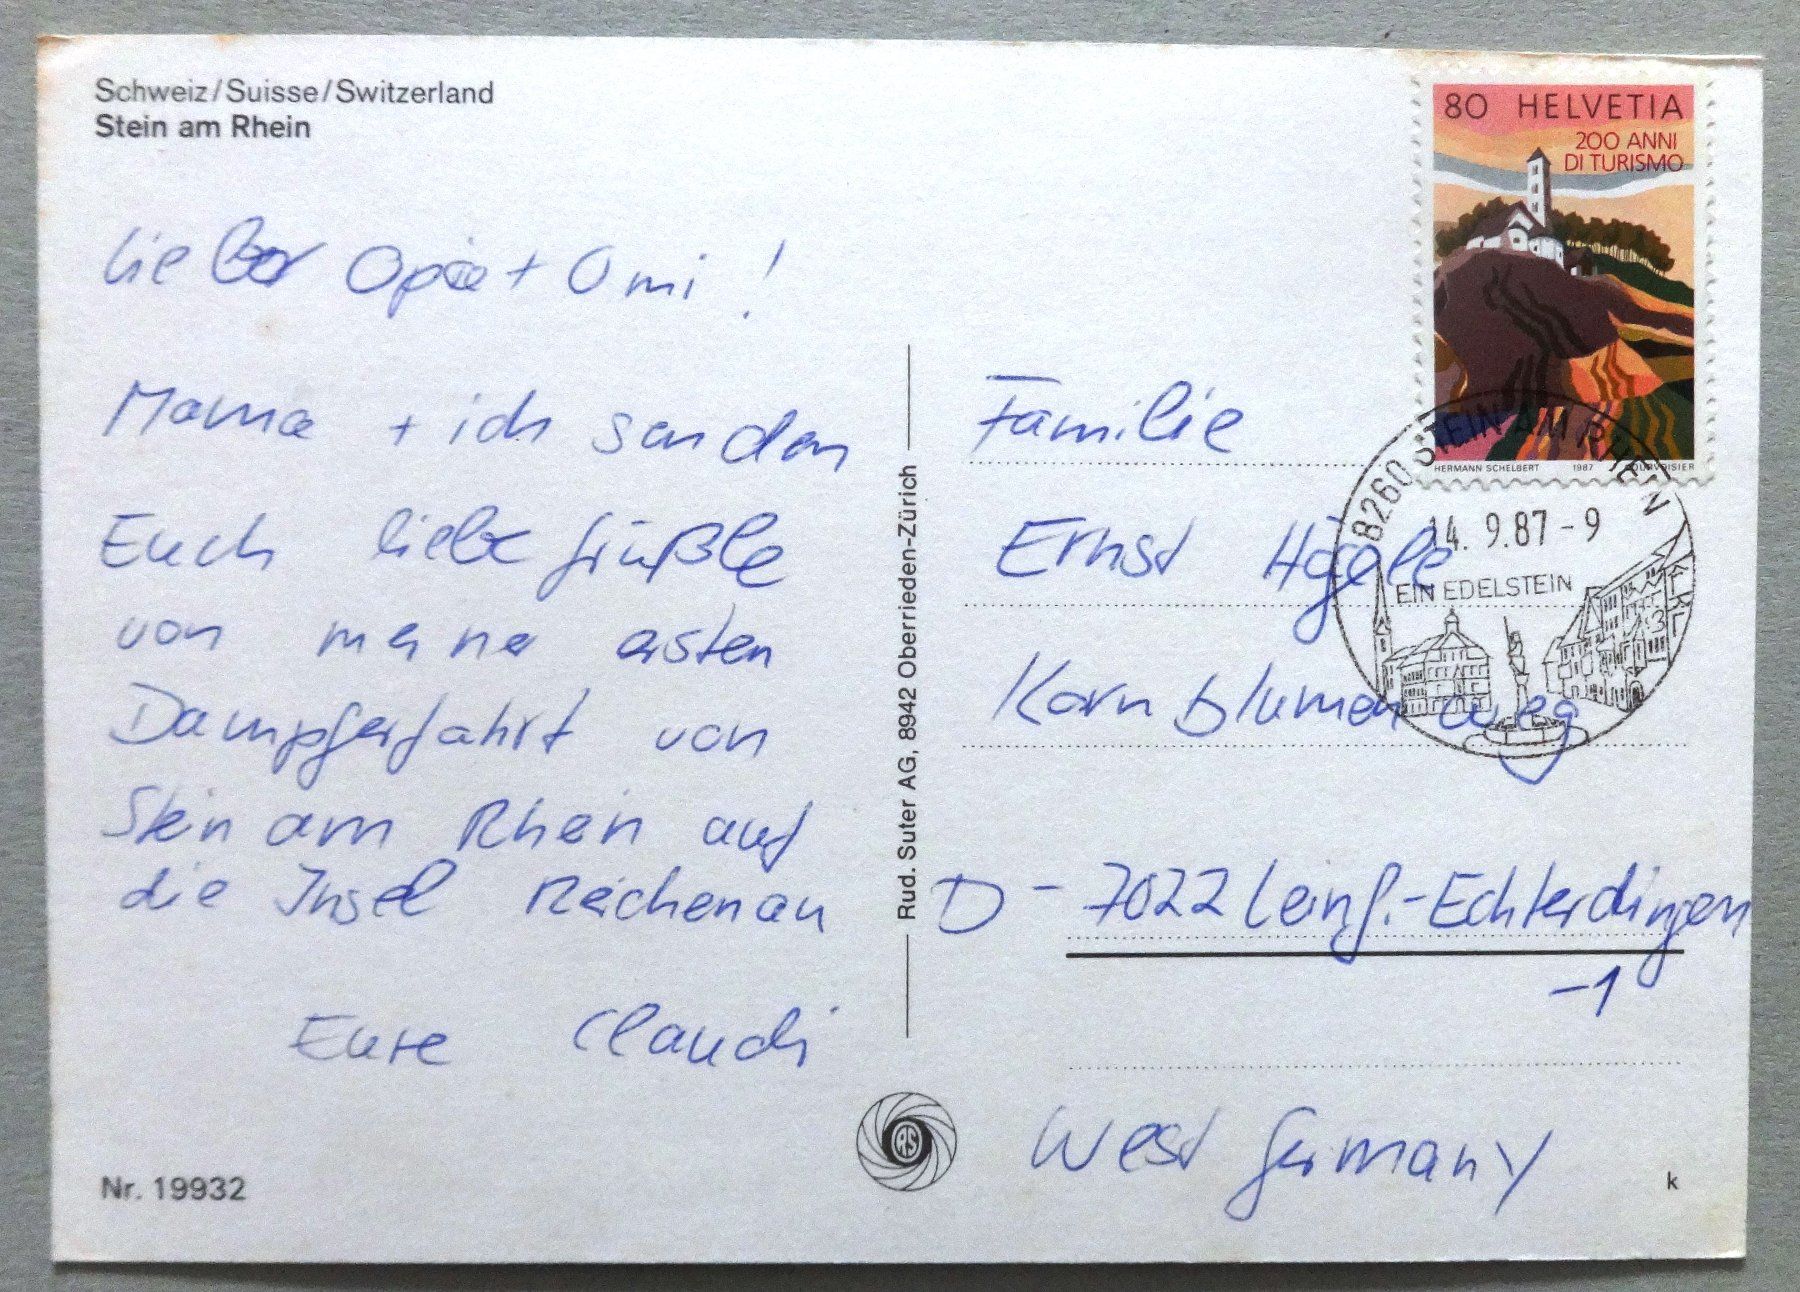 Schweiz/Suisse/Switzerland
Stein am Rhein
Lieber Opa + Omi !
Mama + ich senden
Euch liebe Grüßle
von meiner ersten
Dampferfahrt von
Stein am Rhein auf
die Insel Reichenau
Eure Claudi
Nr. 19932
Rud. Suter AG, 8942 Oberrieden-Zürich
RS
80 HELVETIA
200 ANNI
DI TURISMO
HERMANN SCHELBERT 1987 COURVOISIER
8260 STEIN AM RHEIN
14.9.87-9
EIN EDELSTEIN
Familie
Ernst Hägele
Kornblumenweg
D - 7022 Leinf.-Echterdingen
-1
West Germany
k